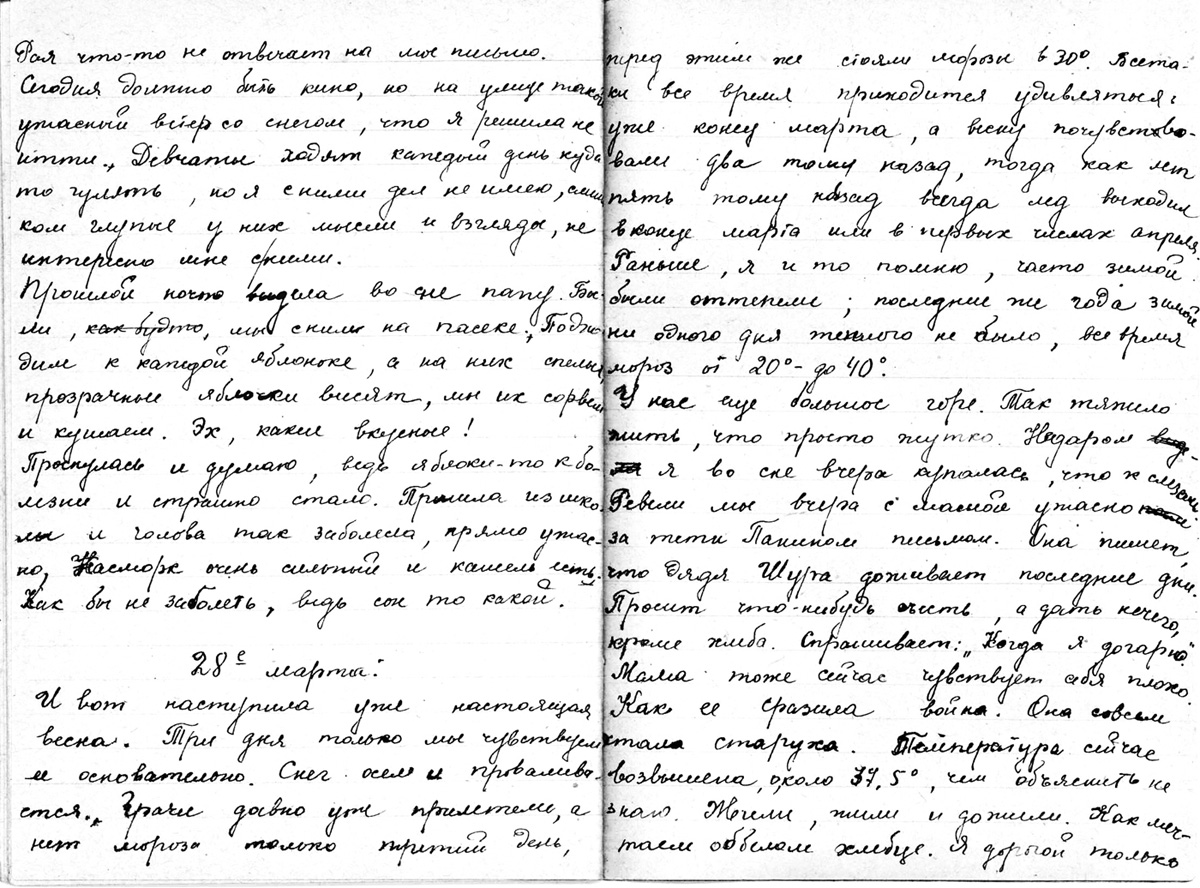 Рая что-то не отвечает на мое письмо.
Сегодня должно быть кино, но на улице такой
ужасный ветер со снегом, что я решила не
итти. Девчаты ходят каждый день куда
то гулять, но я с ними дел не имею, слиш
ком глупые у них мысли и взгляды, не
интересно мне с ними.
Прошлой ночью видела во сне папу. Бы-
ли, как будто, мы с ним на пасеке. Подхо
дим к каждой яблоньке, а на них спелые,
прозрачные яблочки висят, мы их сорвем
и кушаем. Эх, какие вкусные!
Проснулась и думаю, ведь яблоки-то к бо-
лезни и страшно стало. Пришла из шко-
лы и голова так заболела, прямо ужас-
но, Насморк очень сильный и кашель есть.
Как бы не заболеть, ведь сон то какой.
28е марта:
И вот наступила уже настоящая
весна. Три дня только мы чувствуем
ее основательно. Снег осел и провалива-
ется. Грачи давно уж прилетели, а
нет мороза только третий день,
перед этим же стояли морозы в 30°. Всета-
ки все время приходится удивляться:
уже конец марта, а весну почувство-
вали два тому назад, тогда как лет
пять тому назад всегда лед выходил
в конце марта или в первых числах апреля.
Раньше, я и то помню, часто зимой
были оттепели; последние же года зимой
ни одного дня теплого не было, все время
мороз от 20° - до 40°.
У нас еще большое горе. Так тяжело
жить, что просто жутко. Недаром
я во сне вчера купалась, что к слезам
Ревели мы вчера с мамой ужасно
за тети Панином письмом. Она пишет,
что дядя Шура доживает последние дни.
Просит что-нибудь съесть, а дать нечего,
кроме хлеба. Спрашивает: „Когда я догорю".
Мама тоже сейчас чувствует себя плохо.
Как ее сразила война. Она совсем
стала старуха. Температура сейчас
возвышена, около 37,5°, чем объяснить не
знаю. Жили, жили и дожили. Как меч-
таем об белом хлебце. Я дорогой только